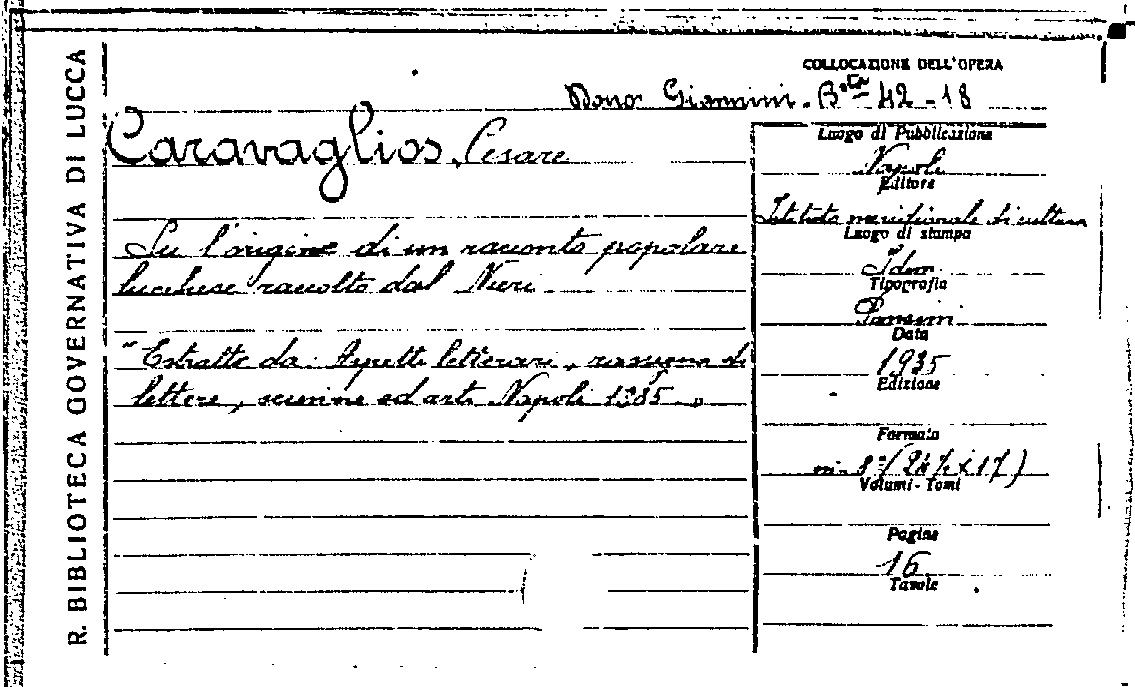 R. BIBLIOTECA GOVERNATIVA DI LUCCA
COLLOCAZIONE DELL'OPERA
Dono Giannini. B.ta 42 - 18
Caravaglios, Cesare
Su l'origine di un racconto popolare
lucchese raccolto dal Nieri
"Estratto da: Aspetti letterari, rassegna di
lettere, scienze ed arti Napoli 1935"
Luogo di Pubblicazione
Napoli
Editore
Istituto meridionale di cultura
Luogo di stampa
Idem
Tipografia
Pansini
Data
1935
Edizione
Formato
in-8° (24½ x 17)
Volumi - Tomi
Pagine
16
Tavole